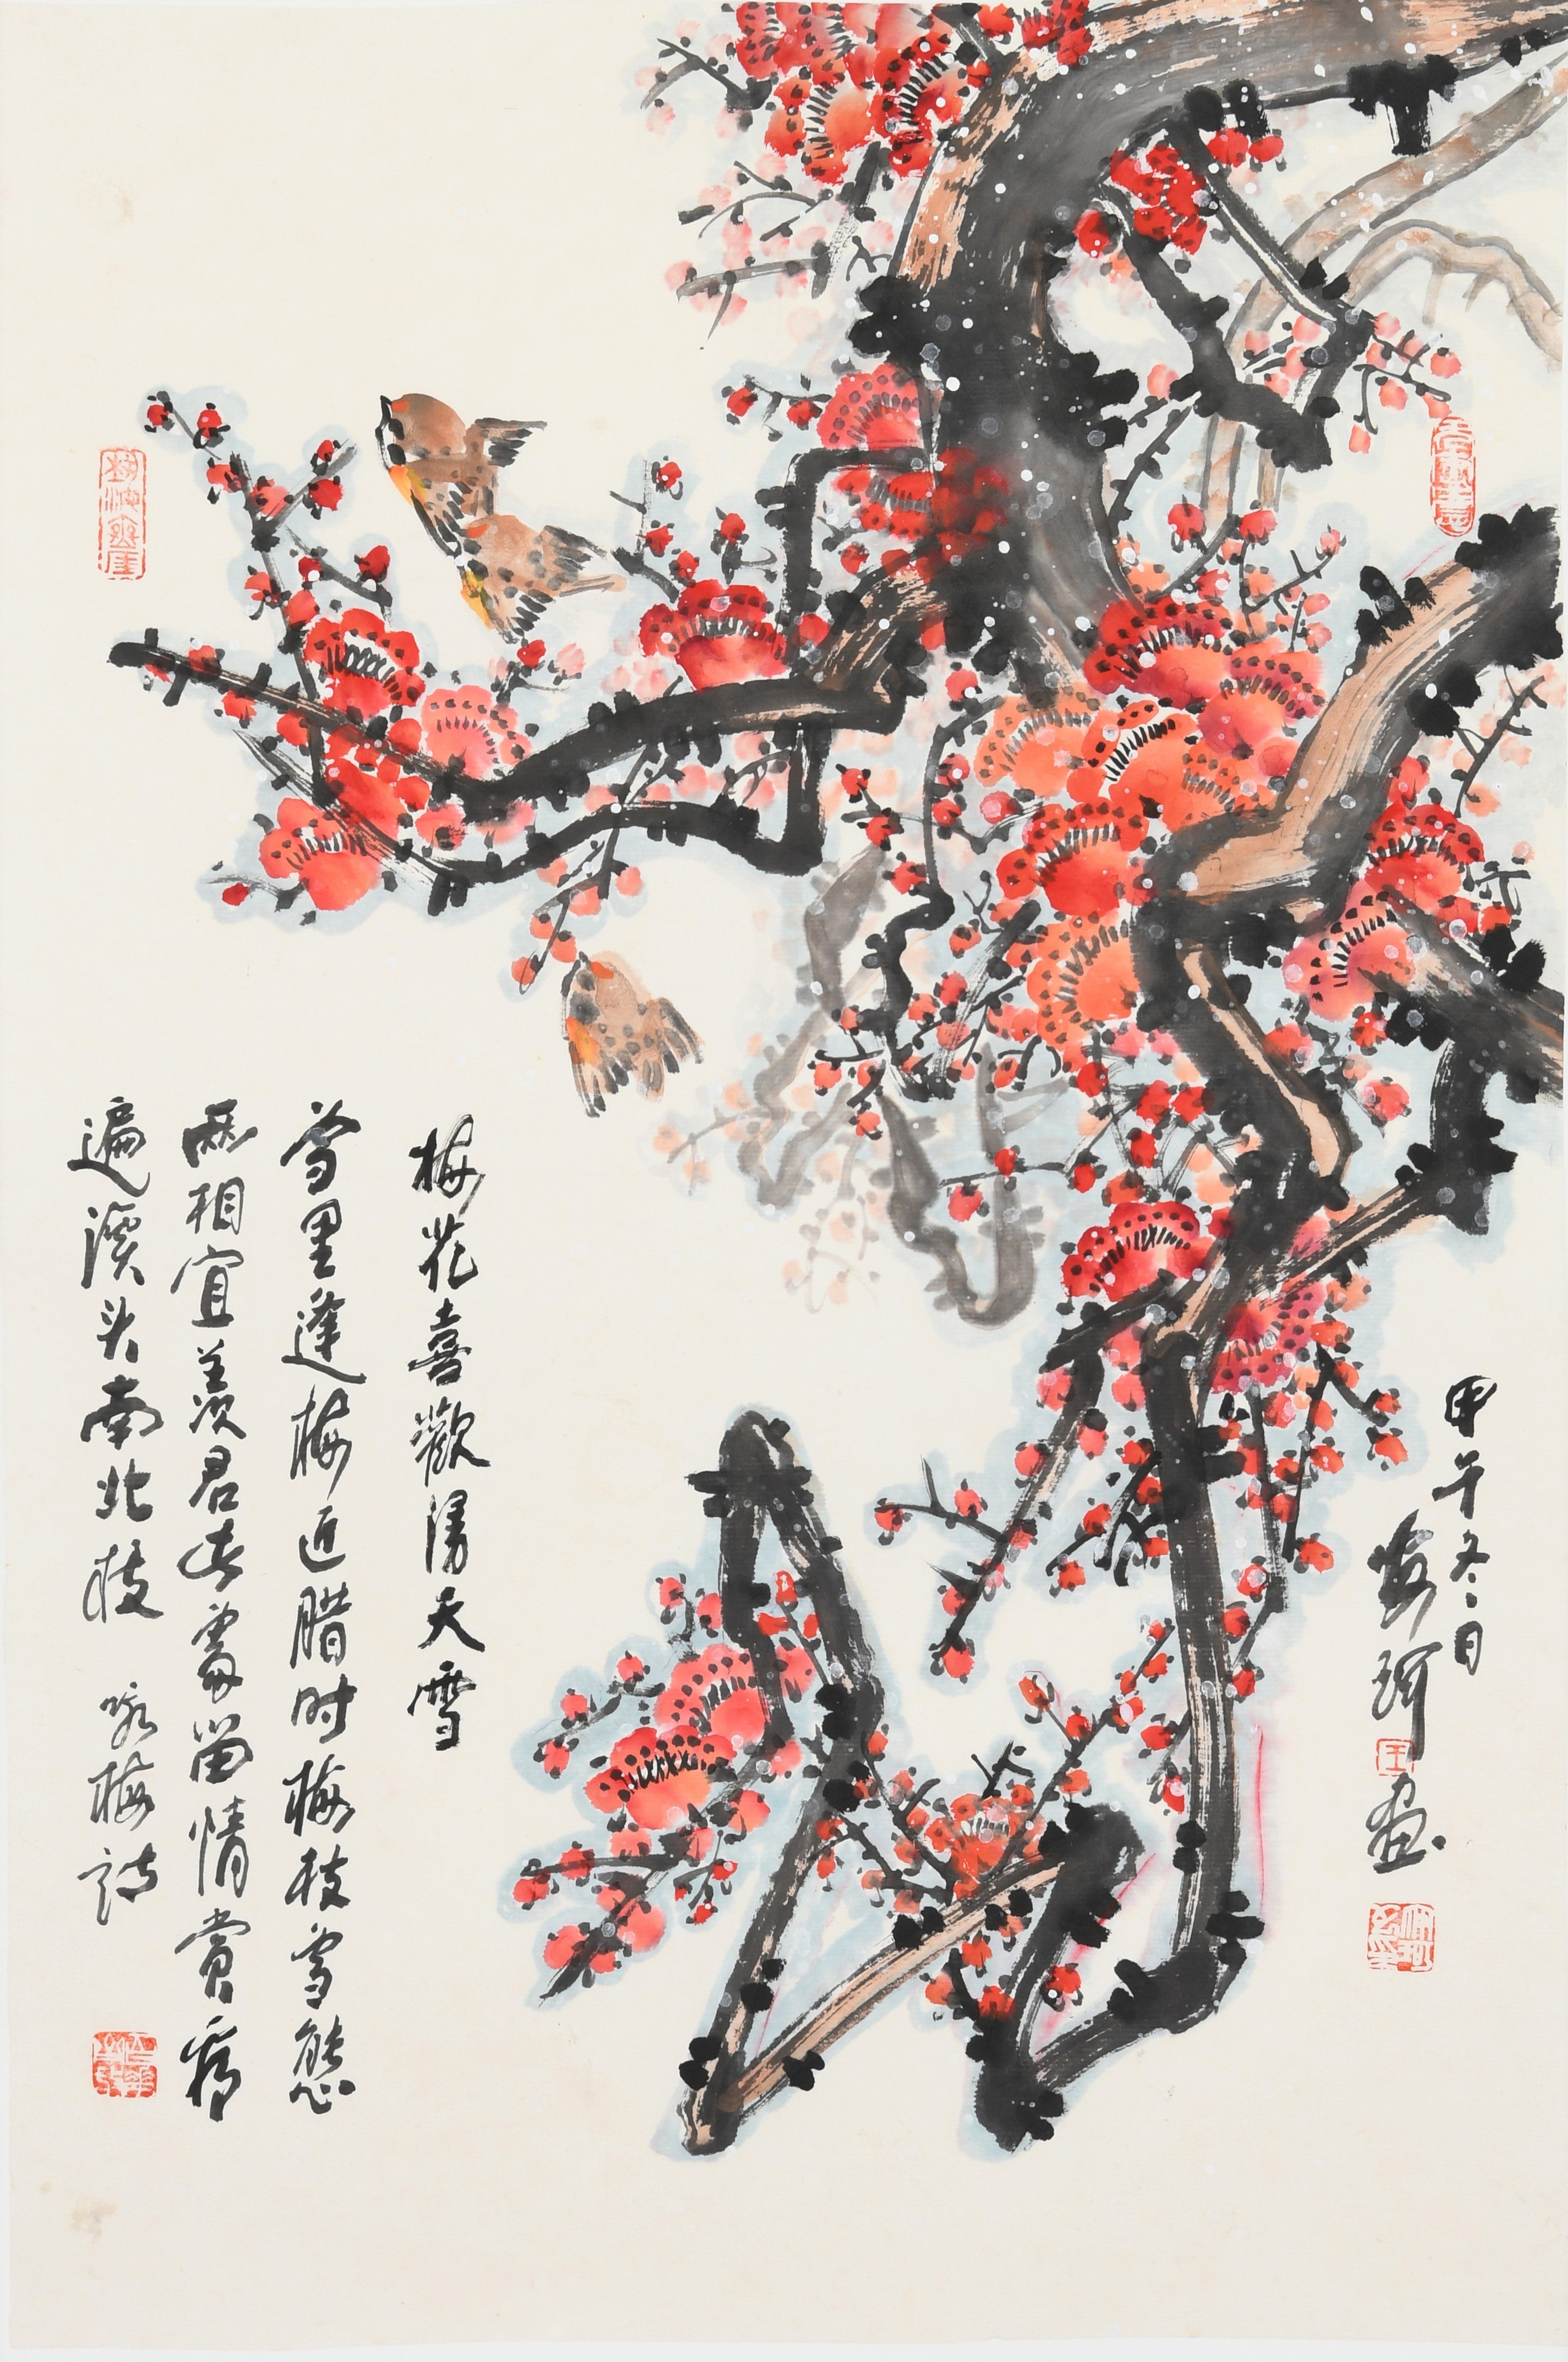 甲午冬日
珂画
梅花喜歡漫天雪
雪里逢梅近腊时梅枝雪態
两相宜羡君留情賞看
遍溪头南北枝 咏梅詩
王